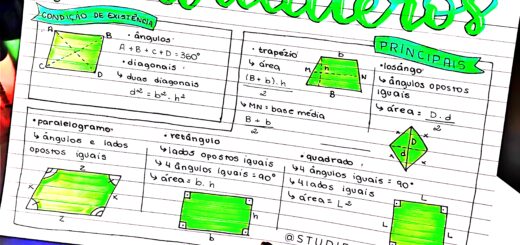 CONDIÇÃO DE EXISTÊNCIA
A
B
C
D
• ângulos
A + B + C + D = 360°
• diagonais
↳ duas diagonais
d² = b² · h²
PRINCIPAIS
• trapézio
↳ área
(B + b) . h
2
↳ MN = base média
B + b
2
b
M
h
N
B
• losângo
↳ ângulos opostos
iguais
↳ área = D . d
2
x
x
D
d
x
x
• paralelogramo •
↳ ângulos e lados
opostos iguais
z
x
x
z
• retângulo
↳ lados opostos iguais
↳ 4 ângulos iguais = 90°
↳ área = b . h
h
b
• quadrado
↳ 4 ângulos iguais = 90°
↳ 4 lados iguais
↳ área = L²
L
L
L